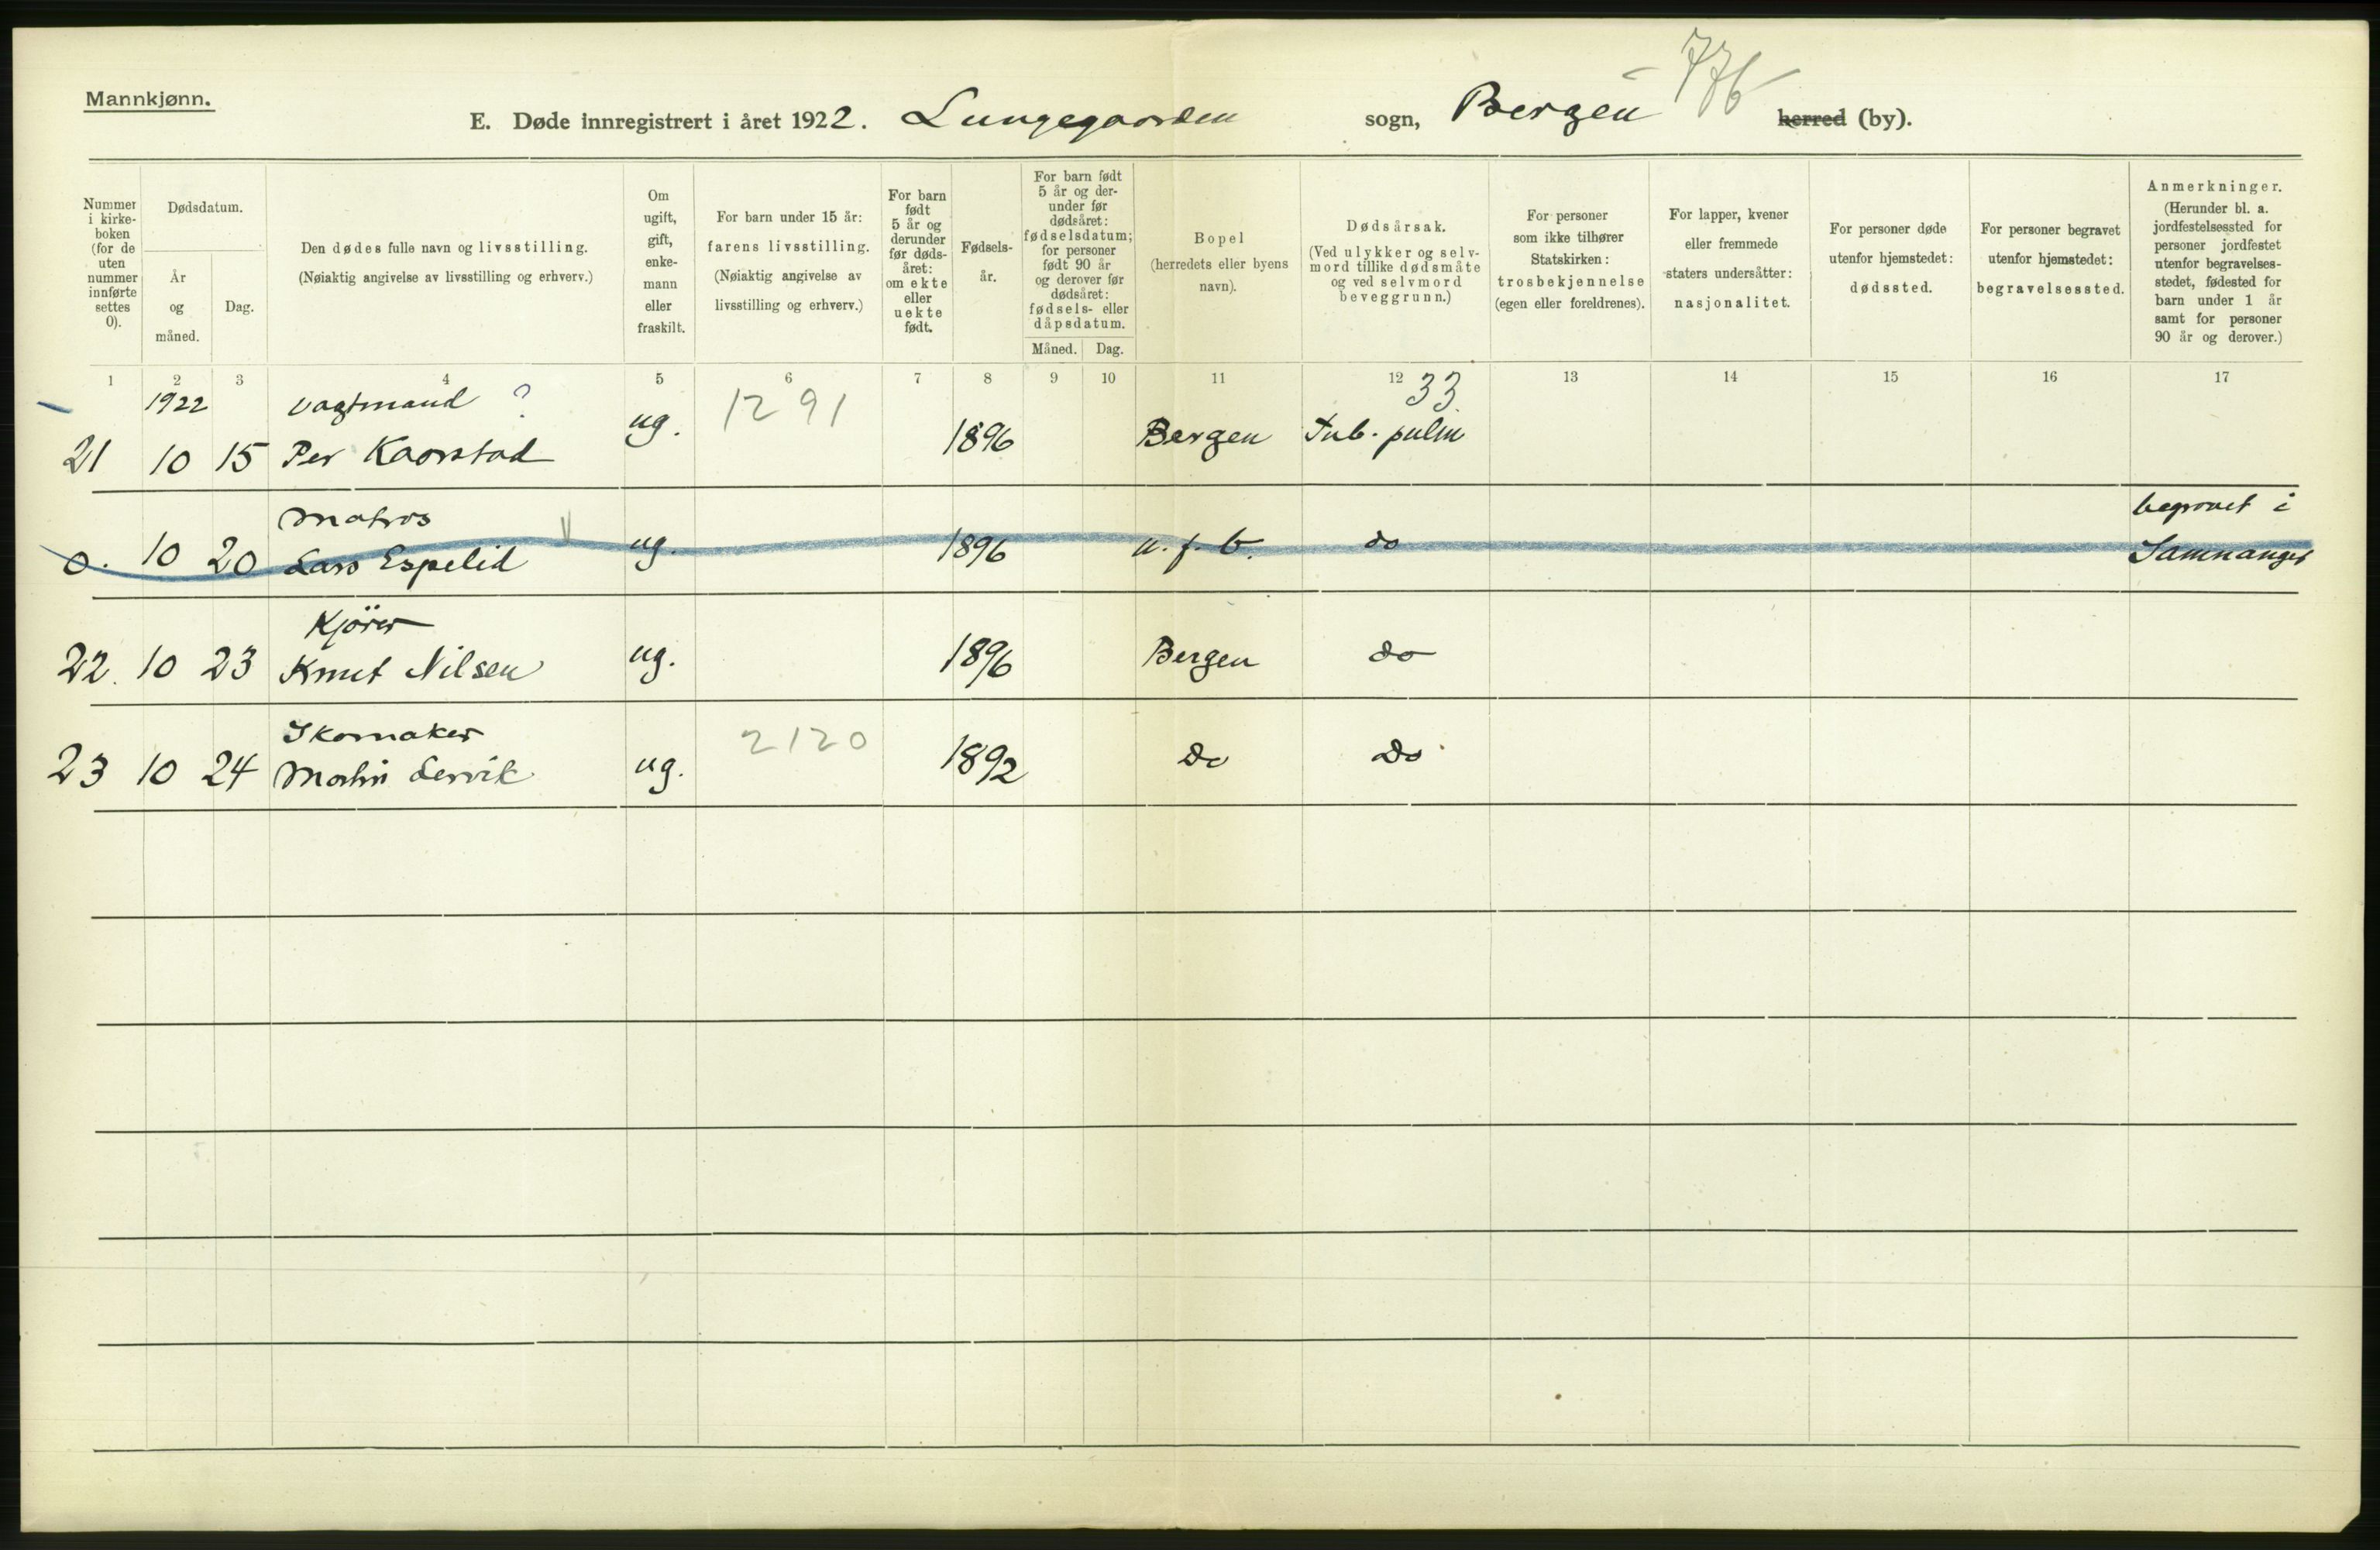 Mannkjønn.
776
E. Døde innregistrert i året 1922. Lungegaarden sogn, Bergen herred (by).
Nummer i kirke-boken (for de uten nummer innførte settes 0).
Dødsdatum.
År og måned.
Dag.
Den dødes fulle navn og livsstilling.
(Nøiaktig angivelse av livsstilling og erhverv.)
Om ugift, gift, enke-mann eller fraskilt.
For barn under 15 år:
farens livsstilling.
(Nøiaktig angivelse av livsstilling og erhverv.)
For barn født 5 år og derunder før døds-året: om ekte eller uekte født.
Fødsels-år.
For barn født 5 år og der-under før dødsåret: fødselsdatum; for personer født 90 år og derover før dødsåret: fødsels- eller dåpsdatum.
Måned. Dag.
Bopel
(herredets eller byens navn).
Dødsårsak.
(Ved ulykker og selv-mord tillike dødsmåte og ved selvmord beveggrunn.)
For personer som ikke tilhører Statskirken: trosbekjennelse (egen eller foreldrenes).
For lapper, kvener eller fremmede staters undersåtter: nasjonalitet.
For personer døde utenfor hjemstedet: dødssted.
For personer begravet utenfor hjemstedet: begravelsessted.
Anmerkninger.
(Herunder bl. a. jordfestelsessted for personer jordfestet utenfor begravelses-stedet, fødested for barn under 1 år samt for personer 90 år og derover.)
1 2 3 4 5 6 7 8 9 10 11 12 13 14 15 16 17
1922 Vagtmand ? 1291 33.
21 10 15 Per Kaarstad ug. 1896 Bergen Tub. pulm
Matros begravet i
0. 10 20 Lars Espelid ug. 1896 u. f. b. do Samnanger
Kjörer
22. 10 23 Knut Nilsen ug. 1896 Bergen do
Skomaker 2120
23 10 24 Martin Lervik ug. 1892 do Do